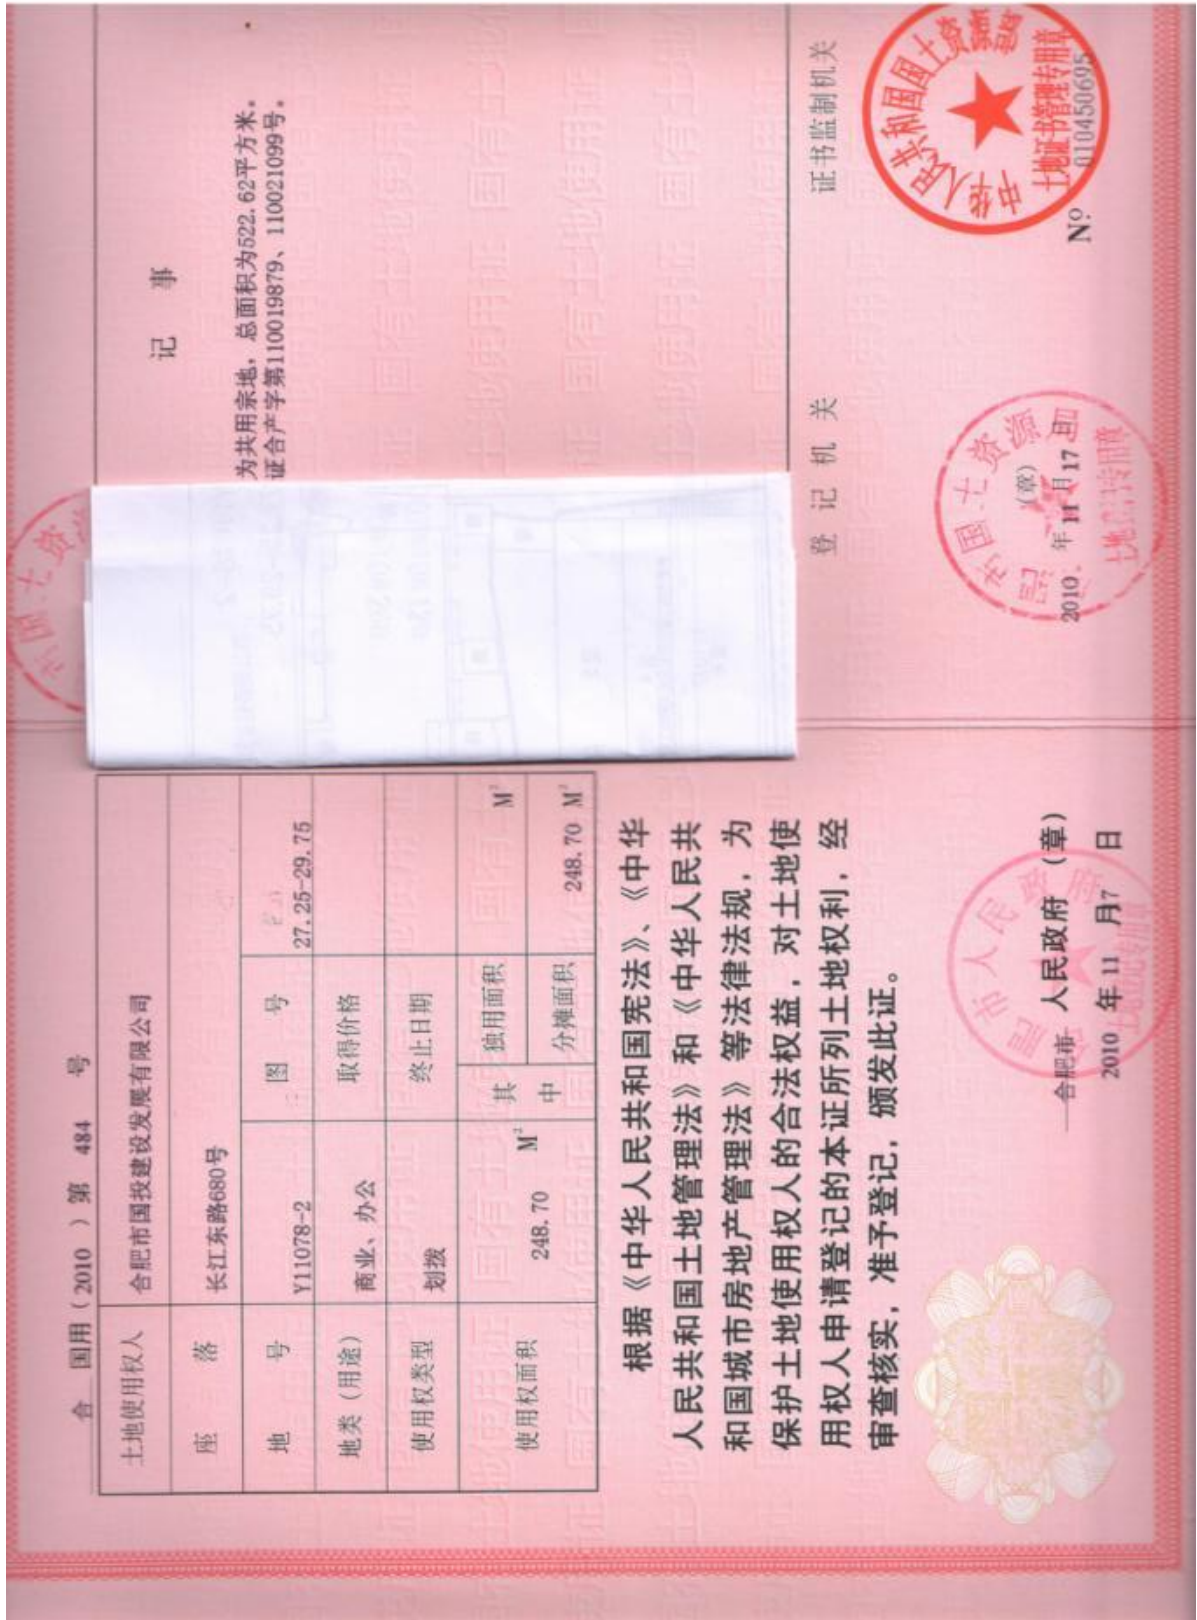 合 国用(2010)第 484 号
土地使用权人 合肥市国投建设发展有限公司
座落 长江东路680号
地号 Y11078-2 图号 27.25-29.75
地类(用途) 商业、办公 取得价格
使用权类型 划拨 终止日期
使用权面积 248.70 M² 其中 独用面积 M²
分摊面积 248.70 M²
根据《中华人民共和国宪法》、《中华
人民共和国土地管理法》和《中华人民共
和国城市房地产管理法》等法律法规，为
保护土地使用权人的合法权益，对土地使
用权人申请登记的本证所列土地权利，经
审查核实，准予登记，颁发此证。
合肥市 人民政府（章）
2010 年 11 月7 日
肥市人民政府
记事
为共用宗地，总面积为522.62平方米。
证合产字第110019879、110021099号。
市国土资
登记机关
（章）
2010 年 11 月 17 日
市国土资源
证书监制机关
中华人民共和国国土资源部
土地证书管理专用章
Nº 010450695